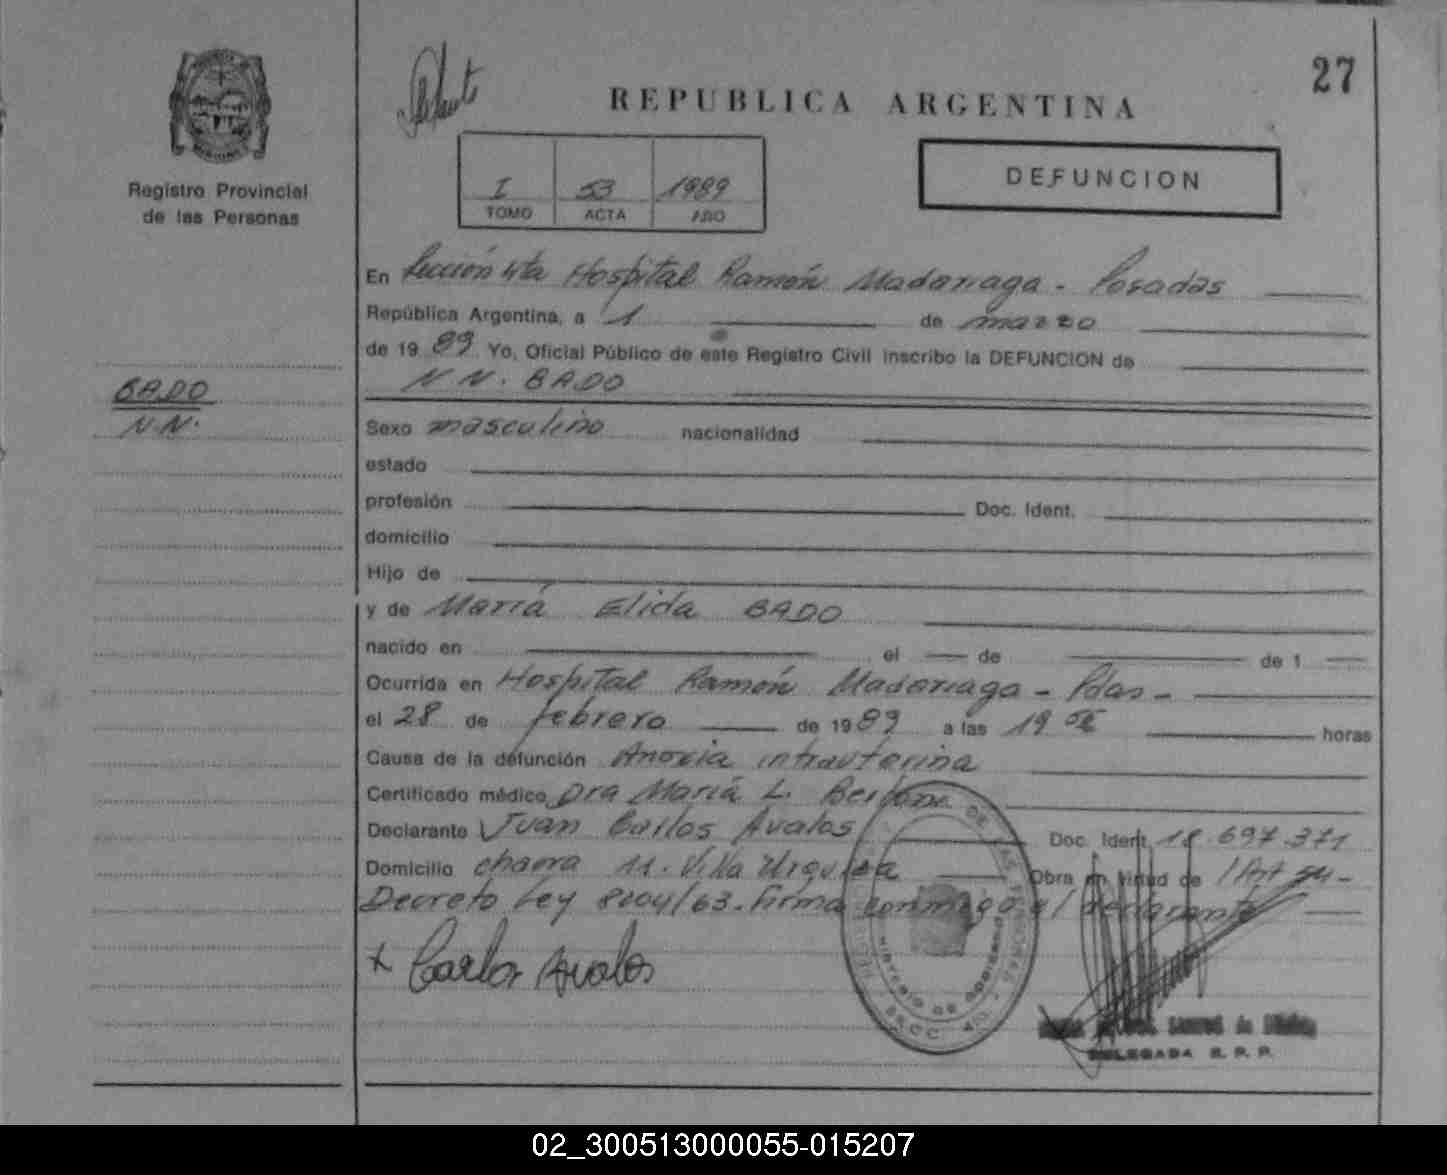 27
REPUBLICA ARGENTINA
Registro Provincial
de las Personas
I 53 1989
TOMO ACTA AÑO
DEFUNCION
En Sección 4ta Hospital Ramón Madariaga - Posadas
República Argentina, a 1 de marzo
de 19 89 Yo, Oficial Público de este Registro Civil inscribo la DEFUNCION de
N N. BADO
BADO
N.N.
Sexo masculino nacionalidad
estado
profesión Doc. Ident.
domicilio
Hijo de
y de María Elida BADO
nacido en el de de 1
Ocurrida en Hospital Ramón Madariaga - Pdas -
el 28 de febrero de 19 89 a las 19 horas
Causa de la defunción Anoxia intrauterina
Certificado médico Dra María L.
Declarante Juan Carlos Avalos Doc. Ident. 18.697.371
Domicilio chacra 11. Villa Urquiza Obra en virtud de
Decreto Ley 8204/63. Firma conmigo el declarante
x Carlos Avalos
DELEGADA R. P. P.
02_300513000055-015207